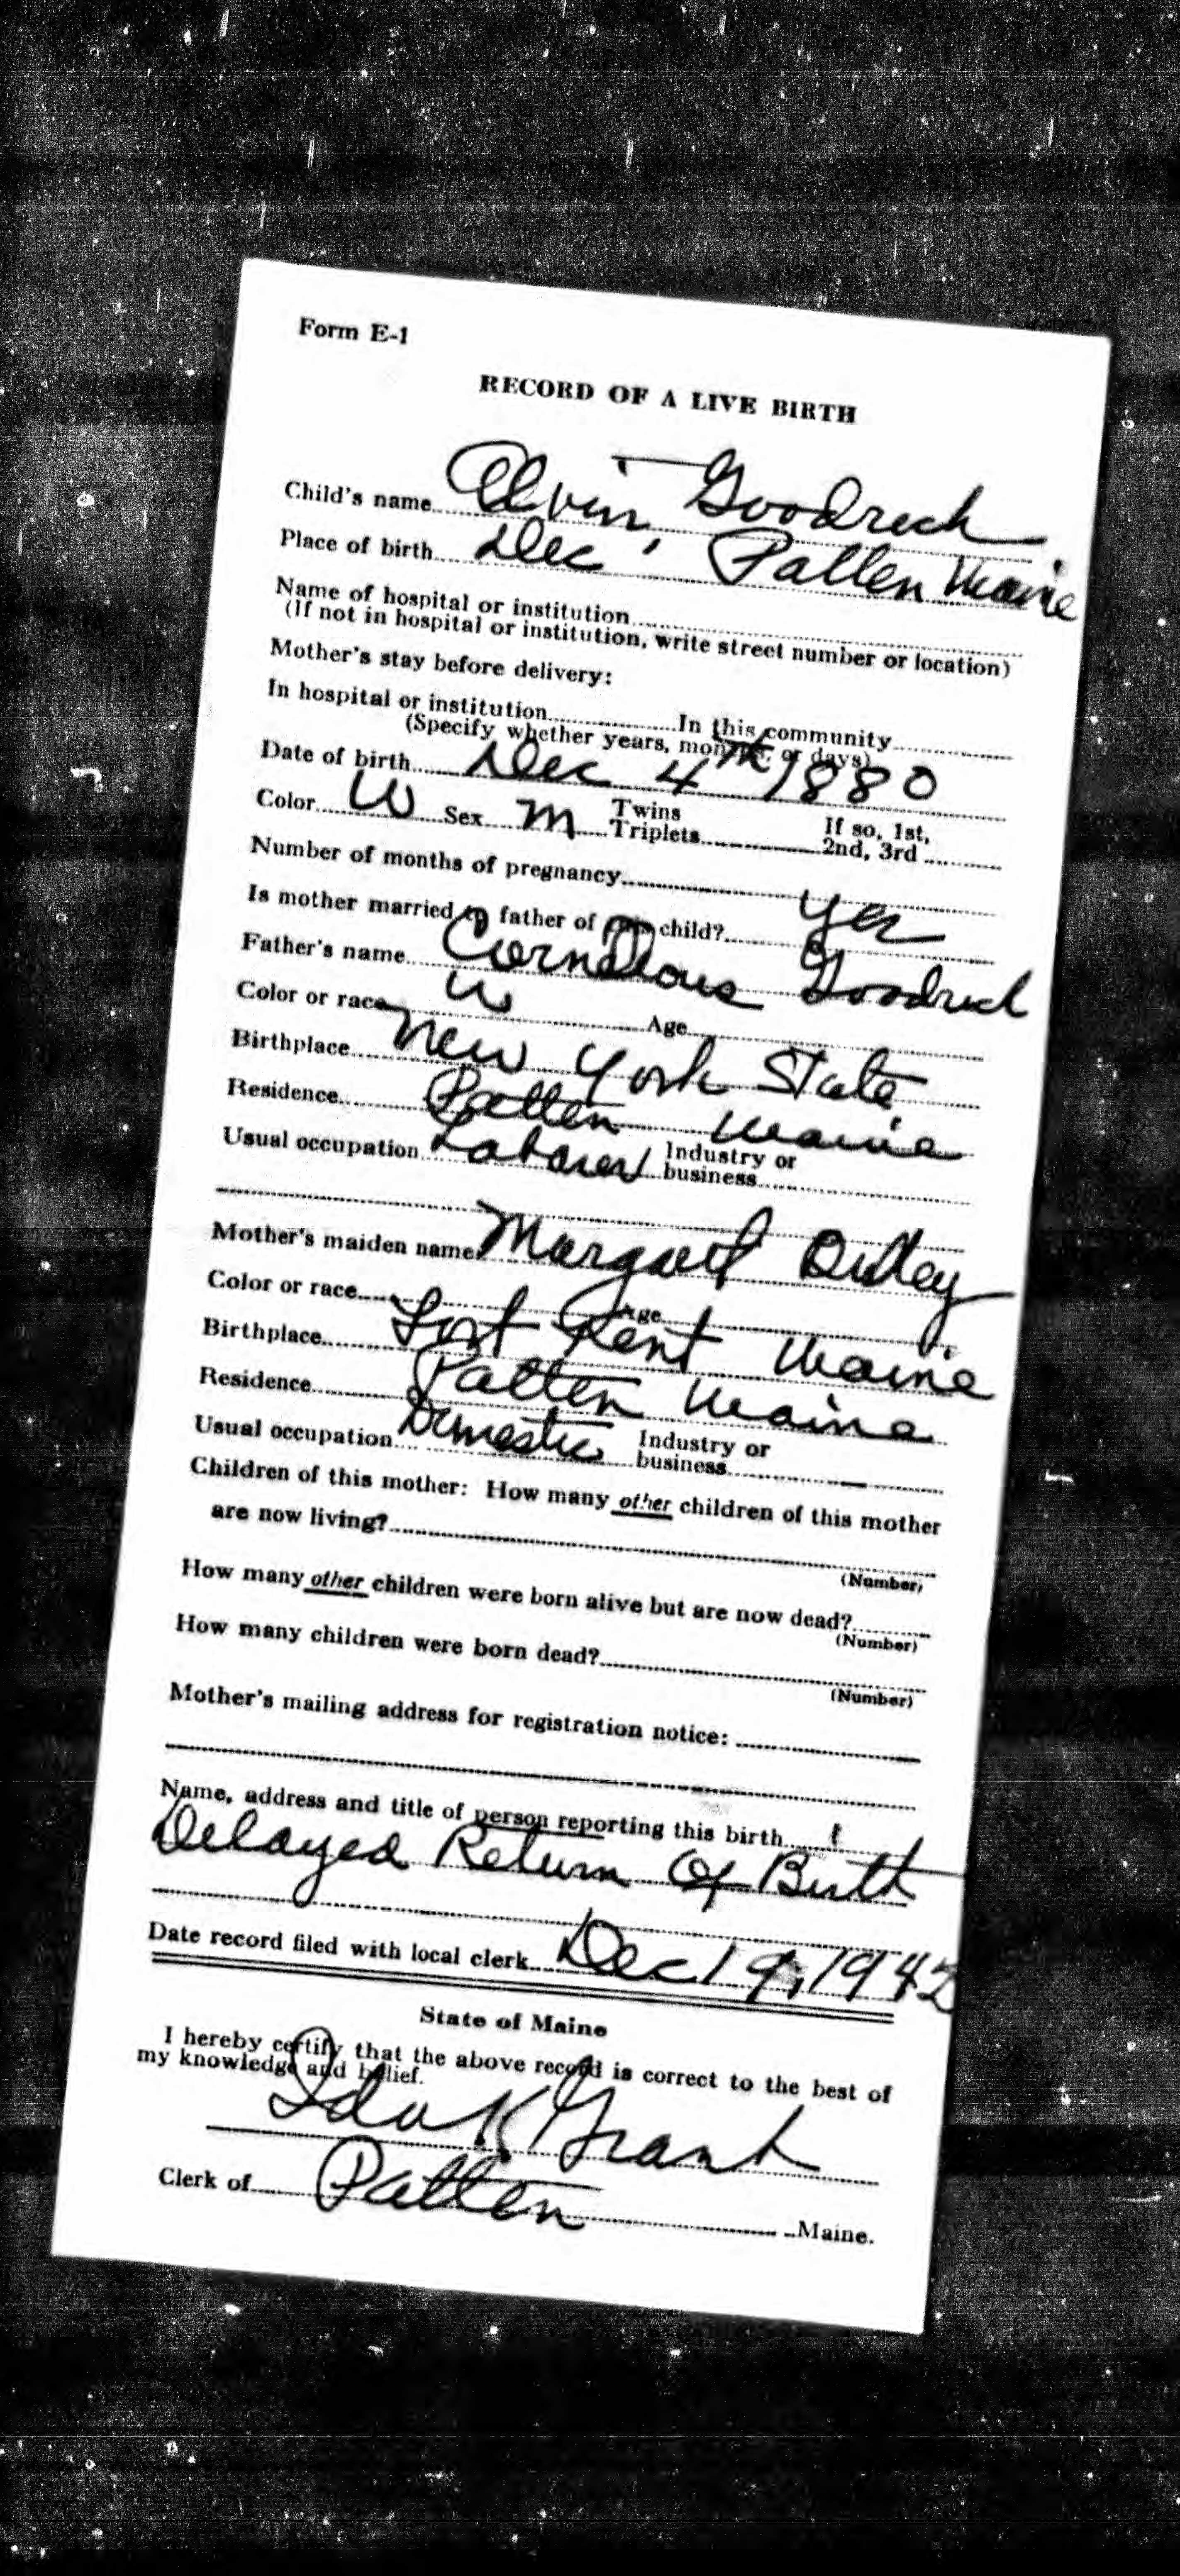 Form E-1
RECORD OF A LIVE BIRTH
Child's name Elvin, Goodrich
Place of birth Dec, Patten Maine
Name of hospital or institution
(If not in hospital or institution, write street number or location)
Mother's stay before delivery:
In hospital or institution In this community
(Specify whether years, months or days)
Date of birth Dec 4th 1880
Color W Sex M Twins Triplets If so, 1st, 2nd, 3rd
Number of months of pregnancy
Is mother married to father of this child? Yes
Father's name Cornelious Goodrich
Color or race W Age
Birthplace New York State
Residence Patten Maine
Usual occupation Laborer Industry or business
Mother's maiden name Margaret
Color or race Age
Birthplace Fort Kent Maine
Residence Patten Maine
Usual occupation Domestic Industry or business
Children of this mother: How many other children of this mother
are now living?
(Number)
How many other children were born alive but are now dead?
(Number)
How many children were born dead?
(Number)
Mother's mailing address for registration notice:
Name, address and title of person reporting this birth
Delayed Return Of Birth
Date record filed with local clerk Dec 19, 1942
State of Maine
I hereby certify that the above record is correct to the best of
my knowledge and belief.
Ida K Grant
Clerk of Patten Maine.